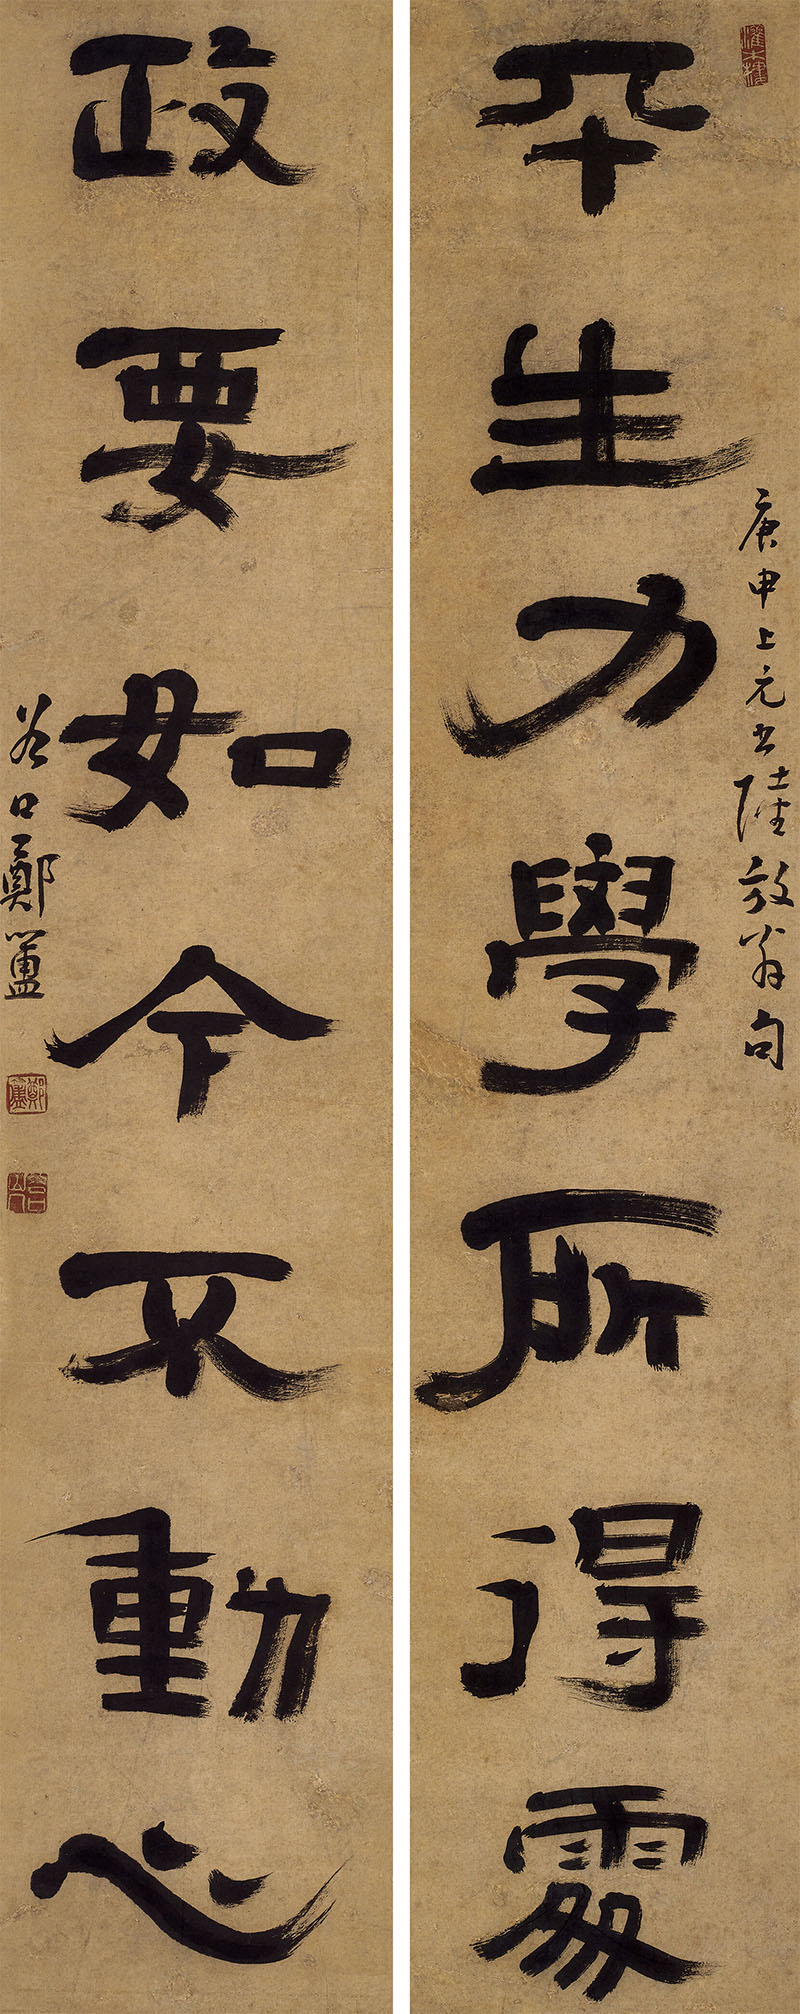 庚申上元書陸放翁句
平生力學所得處
政要如今不動心
谷口鄭簠
鄭簠